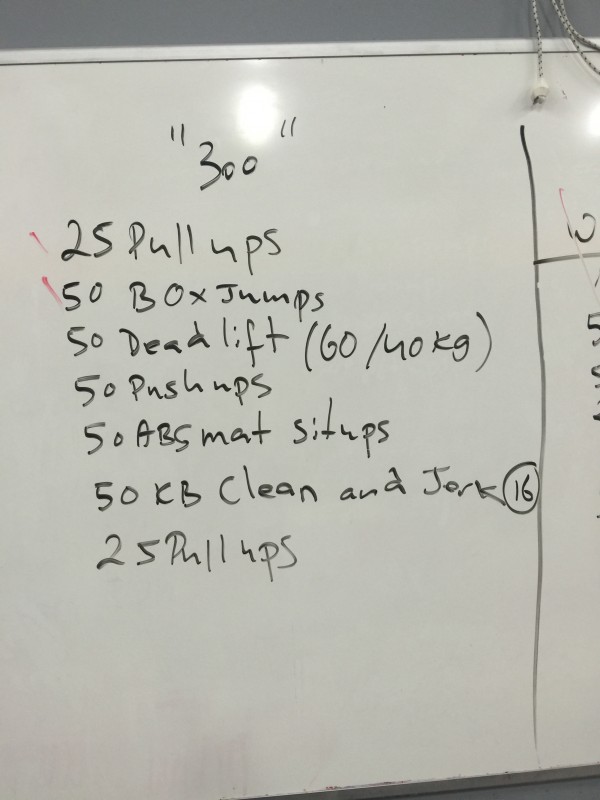 "300"
25 Pull ups
50 BOx Jumps
50 Deadlift (60/40kg)
50 Push ups
50 ABS mat situps
50 KB Clean and Jerk 16
25 Pull ups